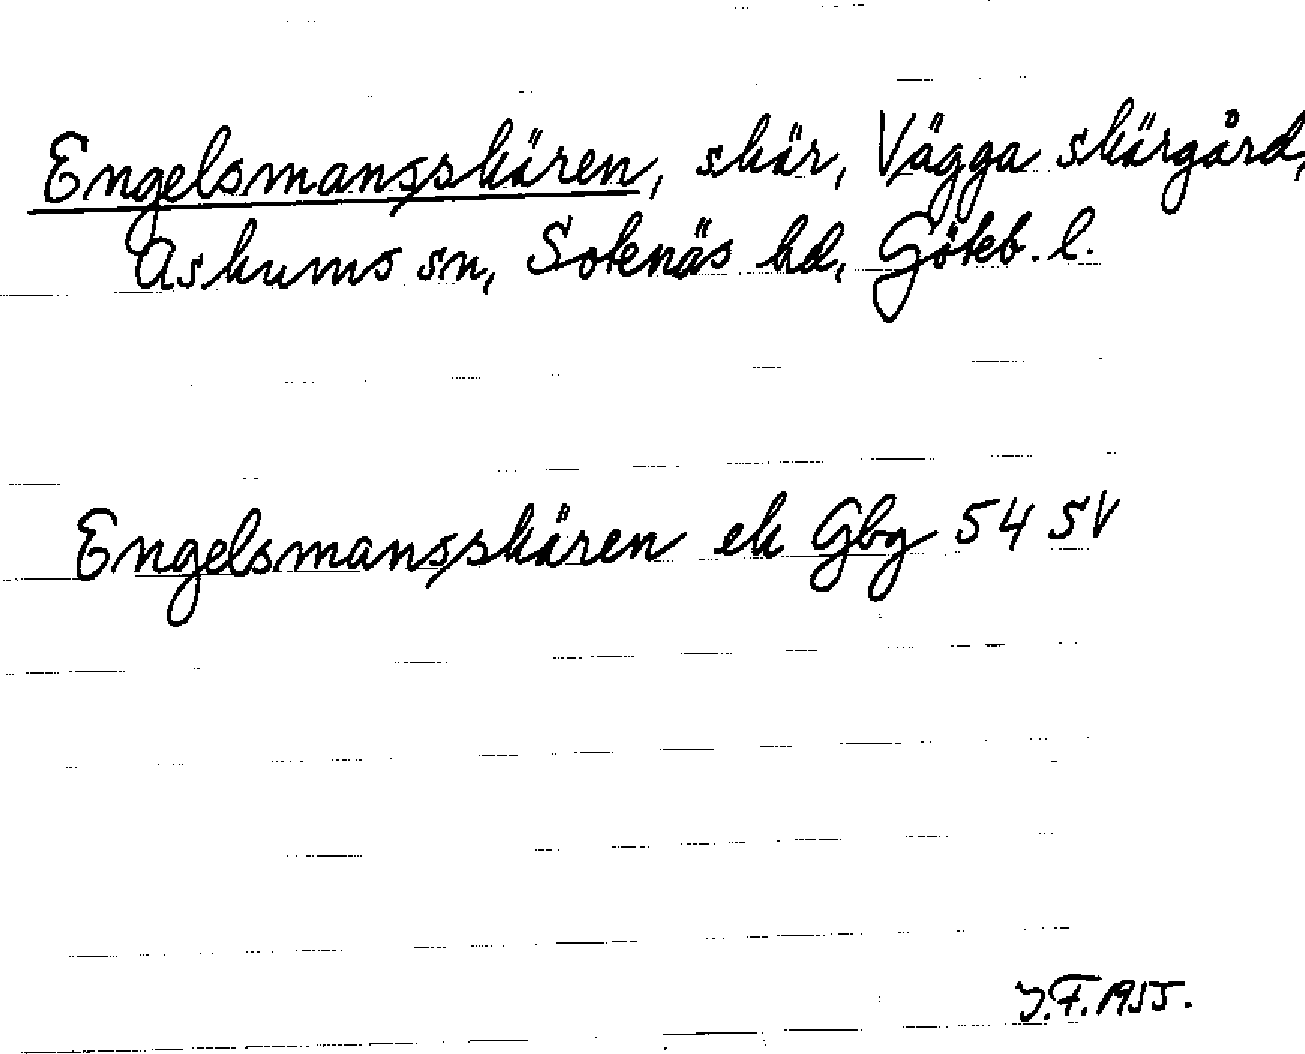 Engelsmansskären, skär, Vägga skärgård,
Askums sn, Sotenäs hd, Göteb. l.
Engelsmansskären ek Gbg 54 SV
J.F. 1955.